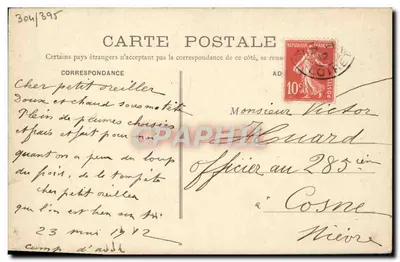 304/395
CARTE POSTALE
Certains pays étrangers n'acceptent pas la correspondance de ce côté, se
CORRESPONDANCE
AD
RÉPUBLIQUE FRANÇAISE
10c
POSTES
LOIRET
CPAPHIL
Cher petit oreiller
Doux et chaud sous ma tête
Plein de plumes choisies
et frais et fait pour
quand on a peur du loup
du froid, de la tempête
cher petit oreiller
que l'on est bien sur toi
23 mai 1912
camp d'
Monsieur Victor
Houard
officier au 285
à Cosne
Nièvre